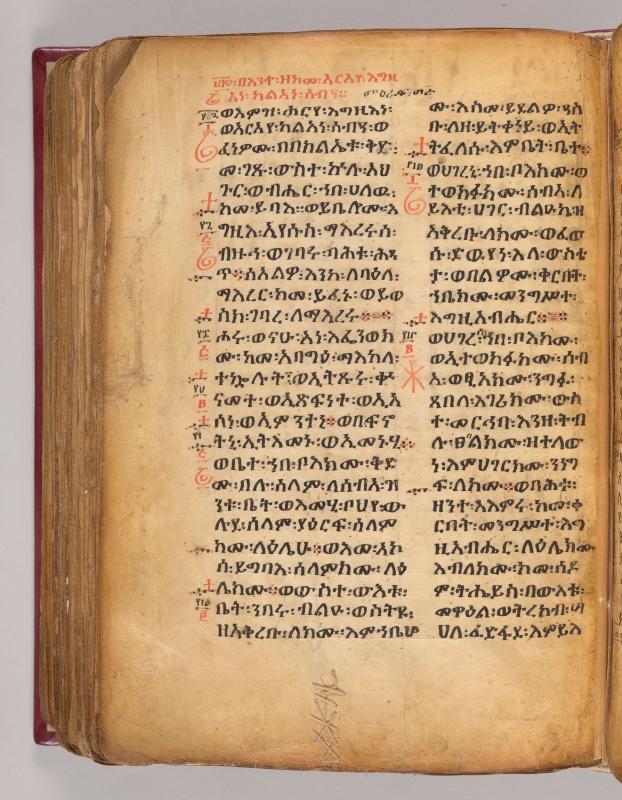 በእንተ፡ ዘከመ፡ አርአየ፡ እግዚ
እነ፡ ካልኣነ፡ ሰብዓ።
ወእምዝ፡ ሐርየ፡ እግዚእነ፡
ወአርአየ፡ ካልኣነ፡ ሰብዓ፡ ወ
ፈነዎሙ፡ በበክልኤቱ፡ ቅድ
መ፡ ገጹ፡ ውስተ፡ ኵሉ፡ አህ
ጉር፡ ወብሔር፡ ኀበ፡ ሀለዉ፡
ከመ፡ ይባእ። ወይቤሎሙ፡ እ
ግዚእ፡ ኢየሱስ፡ ማእረሩሰ፡
ብዙኅ፡ ወገባሩ፡ ባሕቱ፡ ሕዳ
ጥ። ሰአልዎ፡ እንከ፡ ለባዕለ፡
ማእረር፡ ከመ፡ ይፈኑ፡ ወይወ
ስክ፡ ገባረ፡ ለማእረሩ፨
ሑሩ፡ ወናሁ፡ አነ፡ እፌንወክ
ሙ፡ ከመ፡ አባግዕ፡ ማእከለ፡
ተኵላት፡ ወኢትጹሩ፡ ቍ
ናመተ፡ ወኢጽፍነተ፡ ወኢአ
ሰነ፡ ወኢምንተኒ፨ ወበፍኖ
ትኒ፡ ኢትእመኁ፡ ወኢመኑሂ፨
ወቤተ፡ ኀበ፡ ቦእክሙ፡ ቅድ
ሙ፡ በሉ፡ ሰላም፡ ለሰብአ፡ ዝ
ንቱ፡ ቤት፡ ወእመሂ፡ ቦህየ፡ ው
ሉደ፡ ሰላም፡ ያዕርፍ፡ ሰላም
ክሙ፡ ላዕሌሁ፨ ወእመ፡ አኮ
ሰ፡ ይግባእ፡ ሰላምክሙ፡ ላዕ
ሌክሙ፨ ወውስተ፡ ውእቱ፡
ቤት፡ ንበሩ፡ ብልዑ፡ ወስትዩ፡
ዘአቅረቡ፡ ለክሙ፡ እምኀቤሆ
ሙ፡ እስመ፡ ይደልዎ፡ ዓስ
ቡ፡ ለዘ፡ ይትቀነይ፡ ወኢት
ትፈለሱ፡ እምቤት፡ ቤተ፡
ወሀገረኒ፡ ኀበ፡ ቦእክሙ፡ ወ
ተወክፉክሙ፡ ሰብአ፡ ለ
ይእቲ፡ ሀገር፡ ብልዑ፡ ዘ
አቅረቡ፡ ለክሙ፡ ወፈው
ሱ፡ ድዉያነ፡ እለ፡ ውስቴ
ታ፡ ወበልዎሙ፡ ቀርበት፡
ኀቤክሙ፡ መንግሥተ፡
እግዚአብሔር፨
ወሀገረ፡ ኀበ፡ ቦእክሙ፡
ወኢተወክፉክሙ፡ ሰብ
አ፡ ወፂአክሙ፡ ንግፉ፡
ጸበለ፡ እገሪክሙ፡ ውስ
ተ፡ መርኅባ፡ እንዘ፡ ትብ
ሉ፡ ፀበልክሙ፡ ዘተለው
ነ፡ እምሀገርክሙ፡ ንነግ
ፍ፡ ለክሙ፨ ወባሕቱ፡
ዘንተ፡ አእምሩ፡ ከመ፡ ቀ
ርበት፡ መንግሥተ፡ እግ
ዚአብሔር፡ ላዕሌክሙ
እብለክሙ፡ ከመ፡ ሰዶ
ም፡ ትሔይስ፡ በውእቱ፡
መዋዕል፡ ወትረክብ፡ ሣ
ህለ፡ ፈድፋደ፡ እምይእ